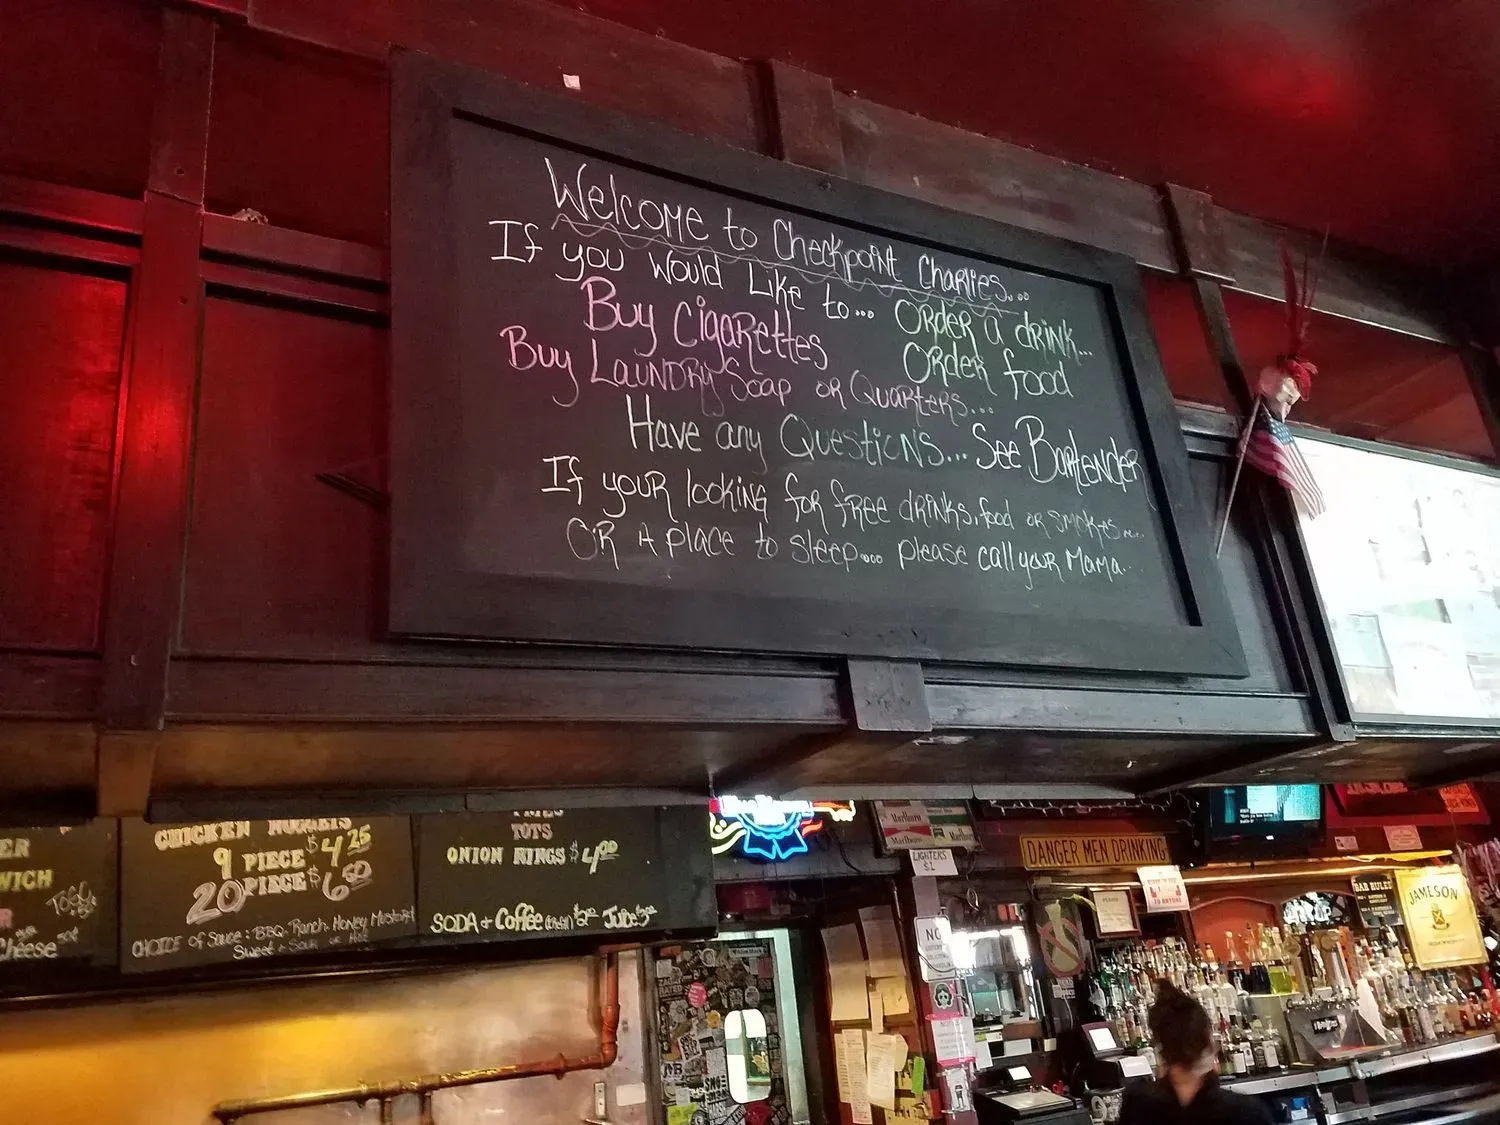 Welcome to Checkpoint Charlies...
If you would Like to... Order a drink...
Buy Cigarettes Order food
Buy Laundry Soap or Quarters...
Have any Questions... See Bartender
If your looking for free drinks, food or smokes...
OR A place to sleep.... please call your Mama.
CHICKEN NUGGETS
9 PIECE $4.25
20 PIECE $6.50
CHOICE of Sauce: BBQ, Ranch, Honey Mustard
Sweet + Sour or Hot
TOTS
ONION RINGS $4.00
SODA + Coffee
Cheese
Marlboro
Marlboro
LIGHTERS
$1
DANGER MEN DRINKING
NO
BAR RULES
JAMESON